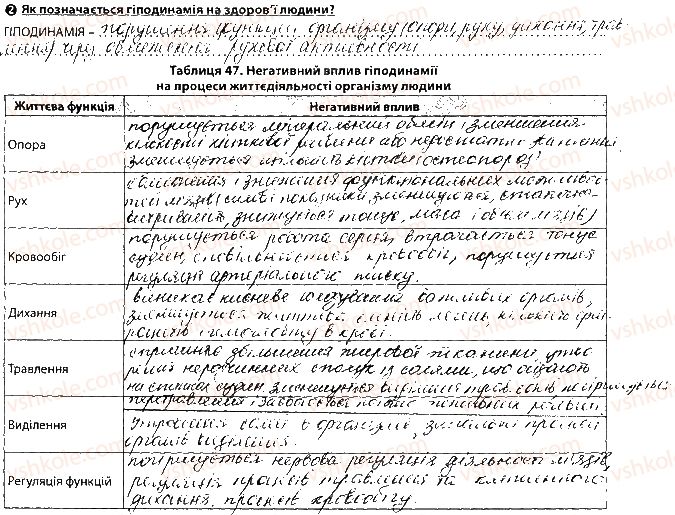 2 Як позначається гіподинамія на здоров'ї людини?
ГІПОДИНАМІЯ – порушення функцій організму (опори, руху, дихання, трав-
лення) при обмеженні рухової активності.
Таблиця 47. Негативний вплив гіподинамії
на процеси життєдіяльності організму людини
Життєва функція Негативний вплив
Опора
порушується мінеральний обмін і зменшення
кількості кісткової або нестачі
зменшується кістки (остеопороз)
Рух
зниження функціональних можливос-
тей м'язів (силові показники зменшуються, статична
витривалість, знижується тонус, маса і об'єм м'язів)
Кровообіг
порушується робота серця, втрачається тонус
судин, сповільнюється кровообіг, порушується
регуляція артеріального тиску.
Дихання
виникає кисневе голодування важливих органів,
зменшується життєва ємність легень, кількість ерит-
роцитів і гемоглобіну в крові.
Травлення
спричиняє збільшення жирової тканини, утво-
рення нерозчинних сполук із солями, що осідають
на стінках судин, зменшується виділення травн. соків, погіршується
перетравлення і засвоюється поживних речовин.
Виділення
солей в організмі, процеси
органів виділення.
Регуляція функцій
погіршується нервова регуляція діяльності м'язів,
регуляція процесів травлення та клітинного
дихання, процесів кровообігу.
vshkole.com
vshkole.com
vshkole.com
vshkole.com